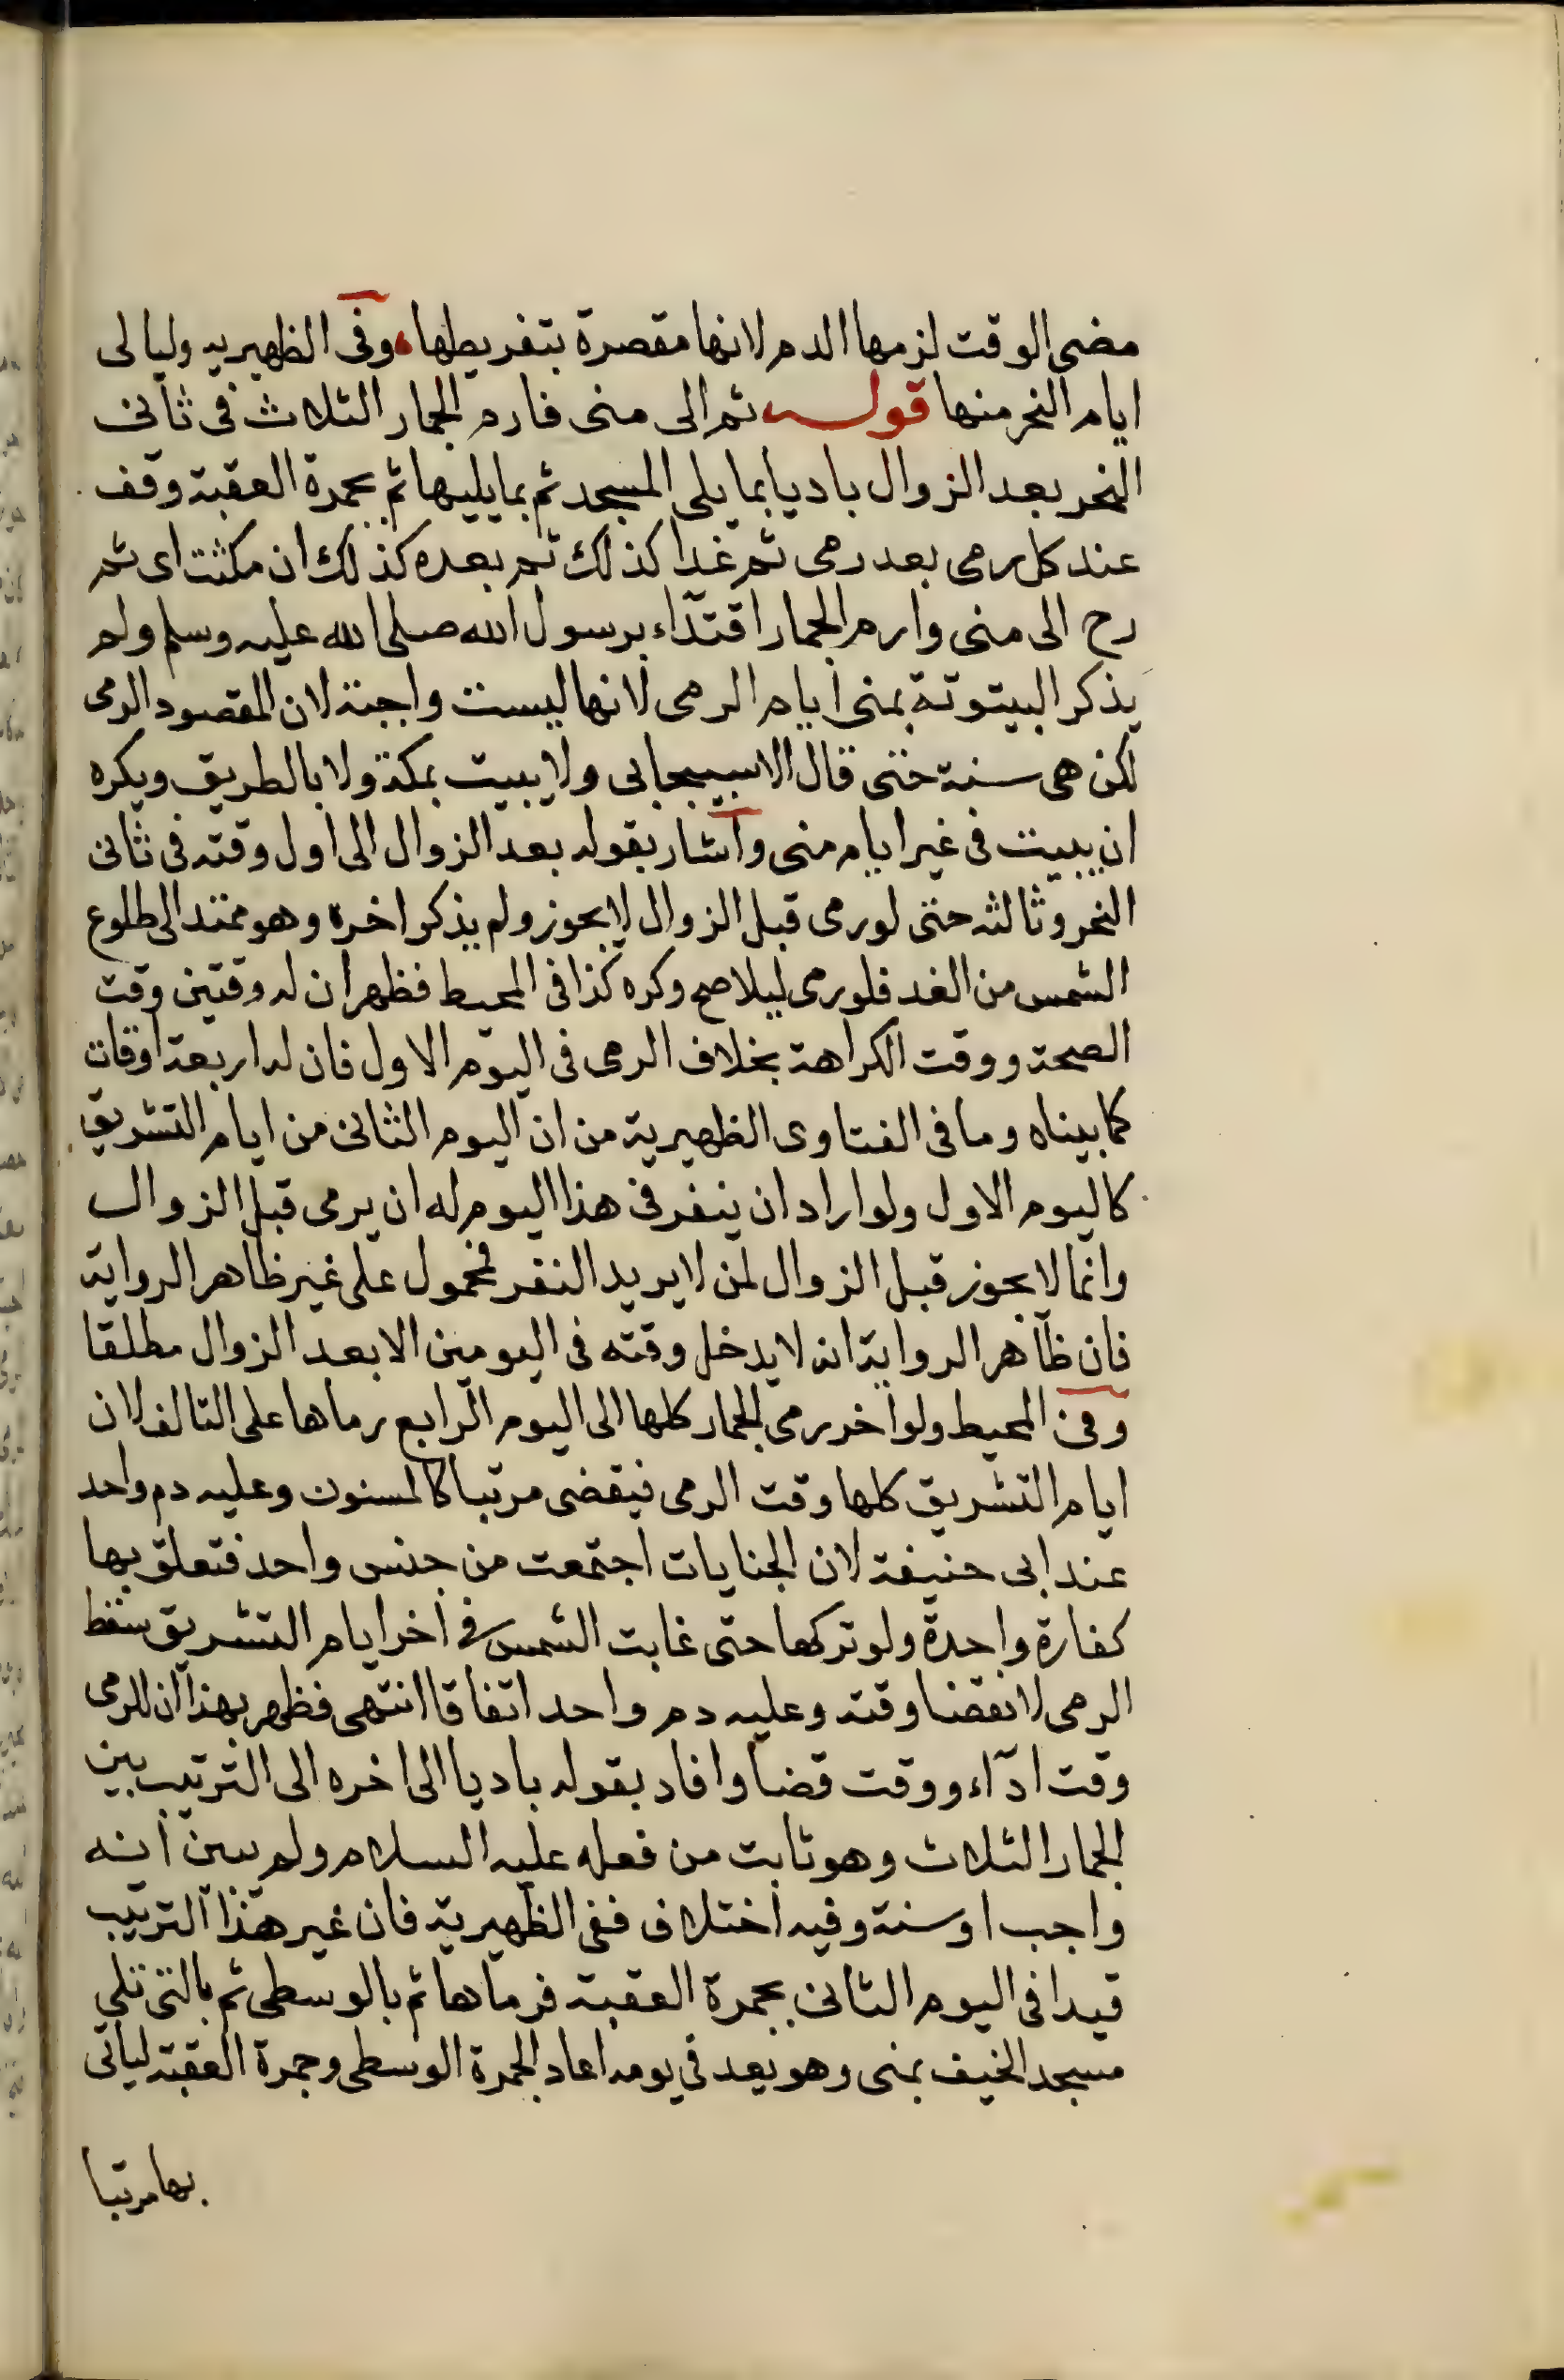 مضى الوقت لزمها الدم لانها مقصرة بتفريطها وفى الظهيريه وليالى
ايام النحر منها قوله ثم الى منى فارم الجمار الثلاث فى ثانى
النحر بعد الزوال باديا بما يلى المسجد ثم بما يليها ثم بجمرة العقبة وقف
عند كل رمى بعد رمى ثم غدا كذلك ثم بعده كذلك ان مكثت اى ثم
رح الى منى وارم الجمار اقتدآء برسول الله صلى الله عليه وسلم ولم
يذكر البيتوتة بمنى ايام الرمى لانها ليست واجبة لان المقصود الرمى
لكن هى سنة حتى قال الاسبيجابى ولا يبيت بمكة ولا بالطريق ويكره
ان يبيت فى غير ايام منى واشار بقوله بعد الزوال الى اول وقته فى ثانى
النحر وثالثه حتى لو رمى قبل الزوال لا يجوز ولم يذكر اخره وهو ممتد الى طلوع
الشمس من الغد فلو رمى ليلا صح وكره كذا فى المحيط فظهر ان له وقتين وقت
الصحة ووقت الكراهة بخلاف الرمى فى اليوم الاول فان له اربعة اوقات
كما بيناه وما فى الفتاوى الظهيرية من ان اليوم الثانى من ايام التشريق
كاليوم الاول ولو اراد ان ينفر فى هذا اليوم له ان يرمى قبل الزوال
وانما لا يجوز قبل الزوال لمن لا يريد النفر فمحمول على غير ظاهر الرواية
فان ظاهر الرواية انه لا يدخل وقته فى اليومين الا بعد الزوال مطلقا
وفى المحيط ولو اخر رمى الجمار كلها الى اليوم الرابع رماها على التالف لان
ايام التشريق كلها وقت الرمى فيقضى مرتبا كالمسنون وعليه دم واحد
عند ابى حنيفة لان الجنايات اجتمعت من جنس واحد فتعلق بها
كفارة واحدة ولو تركها حتى غابت الشمس فى اخر ايام التشريق سقط
الرمى لانقضا وقته وعليه دم واحد اتفاقا انتهى فظهر بهذا ان للرمى
وقت ادآء ووقت قضا وافاد بقوله باديا الى اخره الى الترتيب بين
الجمار الثلاث وهو ثابت من فعله عليه السلام ولم يبين انه
واجب او سنة وفيه اختلاف ففى الظهيرية فان غير هذا الترتيب
قيدا فى اليوم الثانى بجمرة العقبة فرماها ثم بالوسطى ثم بالتى تلى
مسجد الخيف بمنى وهو بعد فى يومه اعاد الجمرة الوسطى وجمرة العقبة لياتى
بها مرتبا